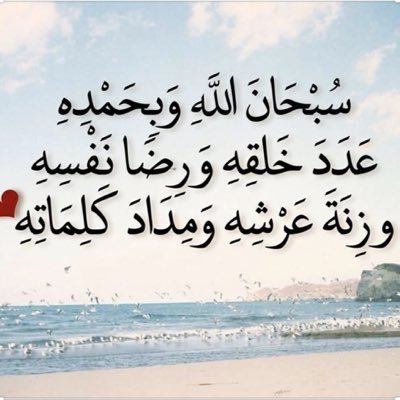 سُبْحَانَ اللَّهِ وَبِحَمْدِهِ
عَدَدَ خَلقِهِ وَرِضَا نَفْسِهِ
وزِنَةَ عَرْشِهِ وَمِدَادَ كَلِمَاتِهِ